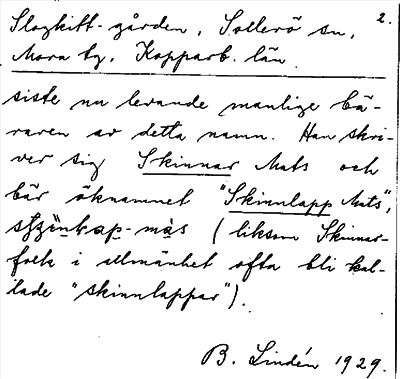 2.
Slogkitt-gården, Sollerö sn,
Mora tg. Kopparb. län.
siste nu levande manlige bä-
raren av detta namn. Han skri-
ver sig Skinnar Mats och
bär öknamnet "Skinnlapp Mats",
(liksom Skinnar-
folk i allmänhet ofta bli kal-
lade "skinnlappar").
B. Lindén 1929.